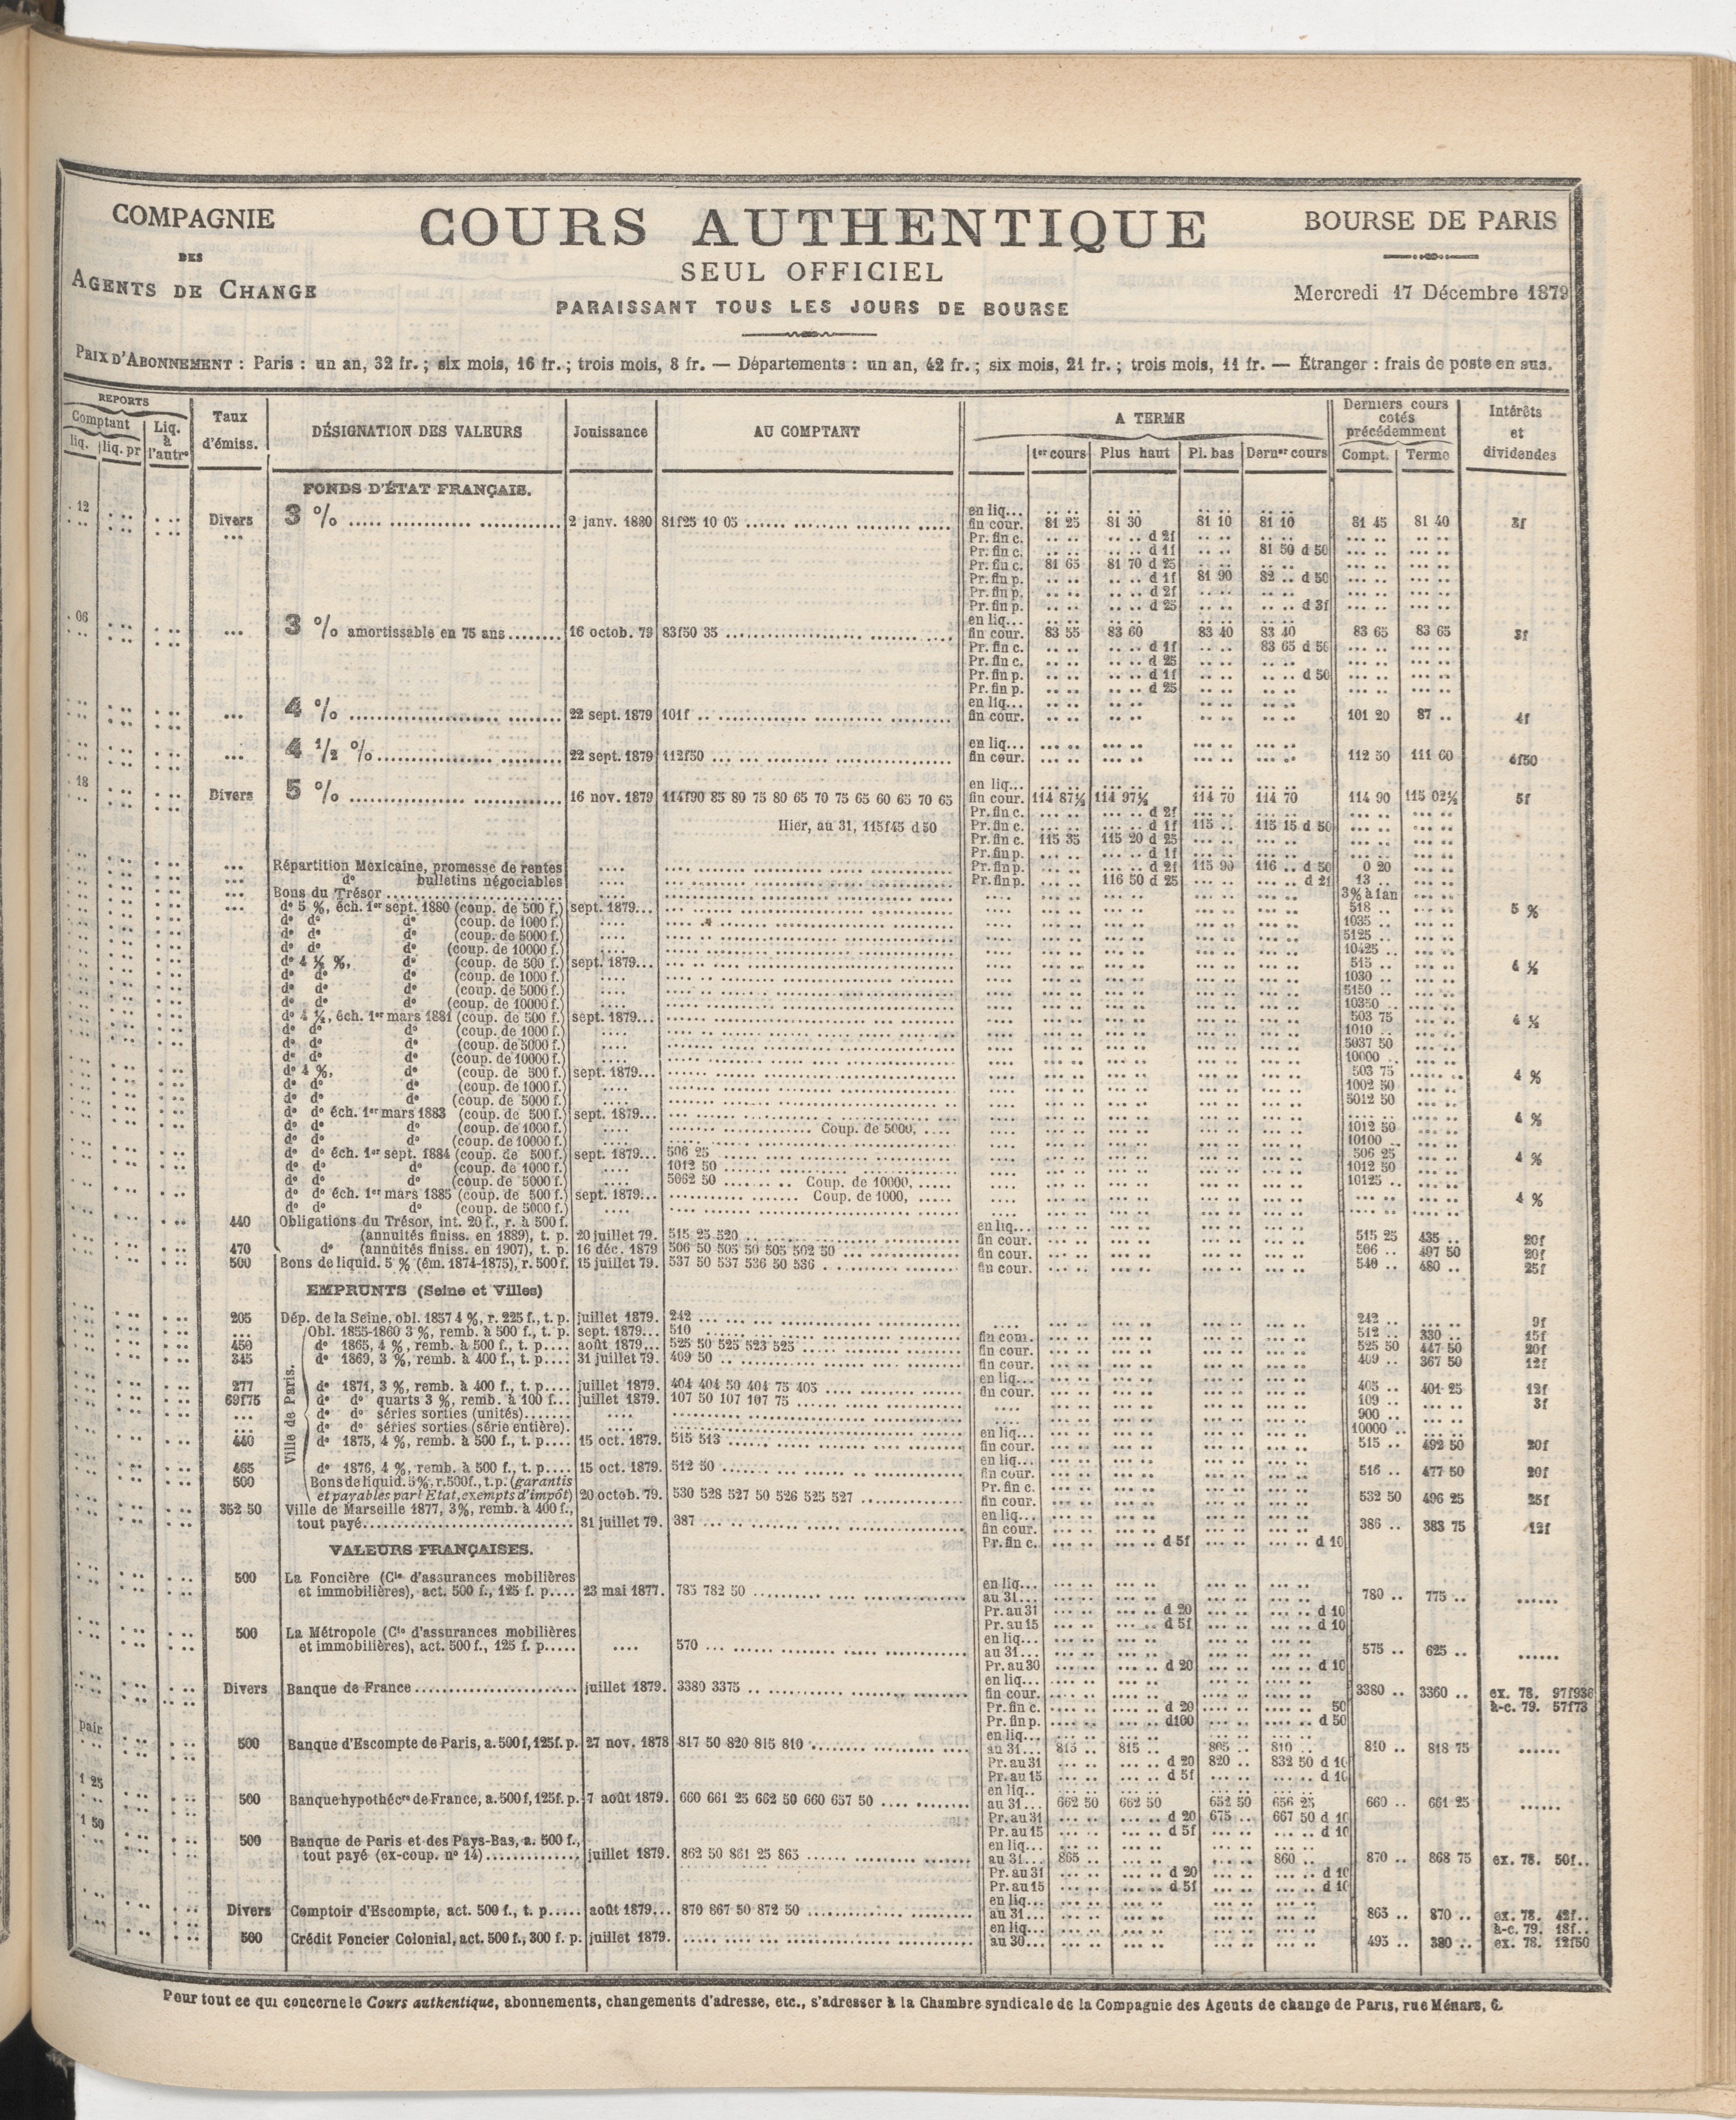 COMPAGNIE
DES
AGENTS DE CHANGE
COURS AUTHENTIQUE
SEUL OFFICIEL
PARAISSANT TOUS LES JOURS DE BOURSE
BOURSE DE PARIS
Mercredi 17 Décembre 1879
PRIX D'ABONNEMENT : Paris : un an, 32 fr. ; six mois, 16 fr. ; trois mois, 8 fr. — Départements : un an, 42 fr. ; six mois, 21 fr. ; trois mois, 11 fr. — Étranger : frais de poste en sus.
REPORTS
Comptant
liq. liq. pr
Liq. à l'autre
Taux d'émiss.
DÉSIGNATION DES VALEURS
Jouissance
AU COMPTANT
A TERME
1er cours Plus haut Pl. bas Dernr cours
Derniers cours cotés précédemment
Compt. Terme
Intérêts et dividendes
FONDS D'ÉTAT FRANÇAIS.
. 12
en liq...
Divers 3 % 2 janv. 1880 81f25 10 05 fin cour. 81 25 81 30 81 10 81 10 81 45 81 40 3f
Pr. fin c. d 2f
Pr. fin c. d 1f 81 50 d 50
Pr. fin c. 81 65 81 70 d 25
Pr. fin p. d 1f 81 90 82 .. d 50
Pr. fin p. d 2f
Pr. fin p. d 25 d 3f
. 06 en liq...
3 % amortissable en 75 ans 16 octob. 79 83f50 35 fin cour. 83 55 83 60 83 40 83 40 83 65 83 65 3f
Pr. fin c. d 1f 83 65 d 50
Pr. fin c. d 25
Pr. fin p. d 1f d 50
Pr. fin p. d 25
en liq...
4 % 22 sept. 1879 101f .. fin cour. 101 20 87 .. 4f
en liq...
4 1/2 % 22 sept. 1879 112f50 fin cour. 112 50 111 60 4f50
. 18 en liq...
Divers 5 % 16 nov. 1879 114f90 85 80 75 80 65 70 75 65 60 65 70 65 fin cour. 114 87½ 114 97½ 114 70 114 70 114 90 115 02½ 5f
Pr. fin c. d 2f
Hier, au 31, 115f45 d 50 Pr. fin c. d 1f 115 .. 115 15 d 50
Pr. fin c. 115 35 115 20 d 25
Pr. fin p. d 1f
Répartition Mexicaine, promesse de rentes Pr. fin p. d 2f 115 90 116 .. d 50 0 20
do bulletins négociables Pr. fin p. 116 50 d 25 d 2f 13 ..
Bons du Trésor 3% à l an
do 5 %, éch. 1er sept. 1880 (coup. de 500 f.) sept. 1879... 518 .. 5 %
do do do (coup. de 1000 f.) 1035 ..
do do do (coup. de 5000 f.) 5125 ..
do do do (coup. de 10000 f.) 10425 ..
do 4 ½ %, do (coup. de 500 f.) sept. 1879... 515 .. 4 ½
do do do (coup. de 1000 f.) 1030 ..
do do do (coup. de 5000 f.) 5150 ..
do do do (coup. de 10000 f.) 10350 ..
do 4 ½, éch. 1er mars 1881 (coup. de 500 f.) sept. 1879... 503 75 4 ½
do do do (coup. de 1000 f.) 1010 ..
do do do (coup. de 5000 f.) 5037 50
do do do (coup. de 10000 f.) 10000 ..
do 4 %, do (coup. de 500 f.) sept. 1879... 503 75 4 %
do do do (coup. de 1000 f.) 1002 50
do do do (coup. de 5000 f.) 5012 50
do do éch. 1er mars 1883 (coup. de 500 f.) sept. 1879... 4 %
do do do (coup. de 1000 f.) Coup. de 5000, 1012 50
do do do (coup. de 10000 f.) 10100 ..
do do éch. 1er sept. 1884 (coup. de 500 f.) sept. 1879... 506 25 506 25 4 %
do do do (coup. de 1000 f.) 1012 50 1012 50
do do do (coup. de 5000 f.) 5062 50 Coup. de 10000, 10125 ..
do do éch. 1er mars 1885 (coup. de 500 f.) sept. 1879... Coup. de 1000, 4 %
do do do (coup. de 5000 f.)
440 Obligations du Trésor, int. 20 f., r. à 500 f. en liq...
(annuités finiss. en 1889), t. p. 20 juillet 79. 515 25 520 fin cour. 515 25 435 .. 20f
470 do (annuités finiss. en 1907), t. p. 16 déc. 1879 506 50 505 50 505 502 50 fin cour. 506 .. 497 50 20f
500 Bons de liquid. 5 % (ém. 1874-1875), r. 500 f. 15 juillet 79. 537 50 537 536 50 536 fin cour. 540 .. 480 .. 25f
EMPRUNTS (Seine et Villes)
205 Dép. de la Seine, obl. 1857 4 %, r. 225 f., t. p. juillet 1879. 242 242 .. 9f
Ville de Paris.
Obl. 1855-1860 3 %, remb. à 500 f., t. p. sept. 1879... 510 fin com. 512 .. 330 .. 15f
450 do 1865, 4 %, remb. à 500 f., t. p.... août 1879... 525 50 525 523 525 fin cour. 525 50 447 50 20f
345 do 1869, 3 %, remb. à 400 f., t. p.... 31 juillet 79. 409 50 fin cour. 409 .. 367 50 12f
en liq...
277 do 1871, 3 %, remb. à 400 f., t. p.... juillet 1879. 404 404 50 404 75 405 fin cour. 405 .. 401 25 12f
69f75 do do quarts 3 %, remb. à 100 f... juillet 1879. 107 50 107 107 75 109 .. 3f
do do séries sorties (unités) 900 ..
do do séries sorties (série entière). en liq... 10000 ..
440 do 1875, 4 %, remb. à 500 f., t. p.... 15 oct. 1879. 515 513 fin cour. 515 .. 492 50 20f
en liq...
465 do 1876, 4 %, remb. à 500 f., t. p.... 15 oct. 1879. 512 50 fin cour. 516 .. 477 50 20f
500 Bons de liquid. 5%, r. 500f., t.p. (garantis Pr. fin c.
et payables par l'Etat, exempts d'impôt) 20 octob. 79. 530 528 527 50 526 525 527 fin cour. 532 50 496 25 25f
352 50 Ville de Marseille 1877, 3%, remb. à 400 f., en liq...
tout payé 31 juillet 79. 387 fin cour. 386 .. 383 75 12f
Pr. fin c. d 5f d 10
VALEURS FRANÇAISES.
500 La Foncière (Cie d'assurances mobilières en liq...
et immobilières), act. 500 f., 125 f. p.... 23 mai 1877. 785 782 50 au 31... 780 .. 775 ..
Pr. au 31 d 20 d 10
Pr. au 15 d 5f d 10
500 La Métropole (Cie d'assurances mobilières en liq...
et immobilières), act. 500 f., 125 f. p..... 570 au 31... 575 .. 625 ..
Pr. au 30 d 20 d 10
en liq...
Divers Banque de France juillet 1879. 3380 3375 fin cour. 3380 .. 3360 .. ex. 78. 97f936
Pr. fin c. d 20 50 à-c. 79. 57f73
Pr. fin p. d100 d 50
pair en liq...
500 Banque d'Escompte de Paris, a. 500 f, 125f. p. 27 nov. 1878 817 50 820 815 810 au 31... 815 .. 815 .. 805 .. 810 .. 810 .. 818 75
Pr. au 31 d 20 820 .. 832 50 d 10
Pr. au 15 d 5f d 10
1 25 en liq...
500 Banque hypothécre de France, a. 500 f, 125f. p. 7 août 1879. 660 661 25 662 50 660 657 50 au 31... 662 50 662 50 652 50 656 25 660 .. 661 25
Pr. au 31 d 20 675 .. 667 50 d 10
1 50 Pr. au 15 d 5f d 10
500 Banque de Paris et des Pays-Bas, a. 500 f., en liq...
tout payé (ex-coup. no 14) juillet 1879. 862 50 861 25 865 au 31... 865 .. 860 .. 870 .. 868 75 ex. 78. 50f..
Pr. au 31 d 20 d 10
Pr. au 15 d 5f d 10
en liq...
Divers Comptoir d'Escompte, act. 500 f., t. p..... août 1879... 870 867 50 872 50 au 31... 865 .. 870 .. ex. 78. 42f..
en liq... à-c. 79. 18f..
500 Crédit Foncier Colonial, act. 500 f., 300 f. p. juillet 1879. au 30... 495 .. 380 .. ex. 78. 12f50
Pour tout ce qui concerne le Cours authentique, abonnements, changements d'adresse, etc., s'adresser à la Chambre syndicale de la Compagnie des Agents de change de Paris, rue Ménars, 6.